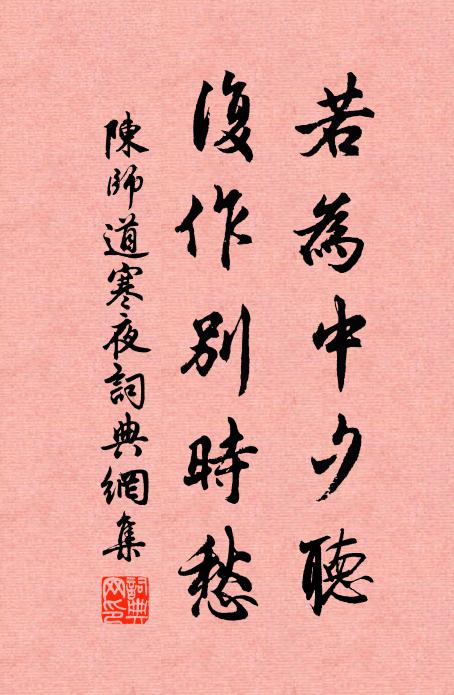 若為中夕聽
復作別時愁
陳師道寒夜詞典網集
詞典網印